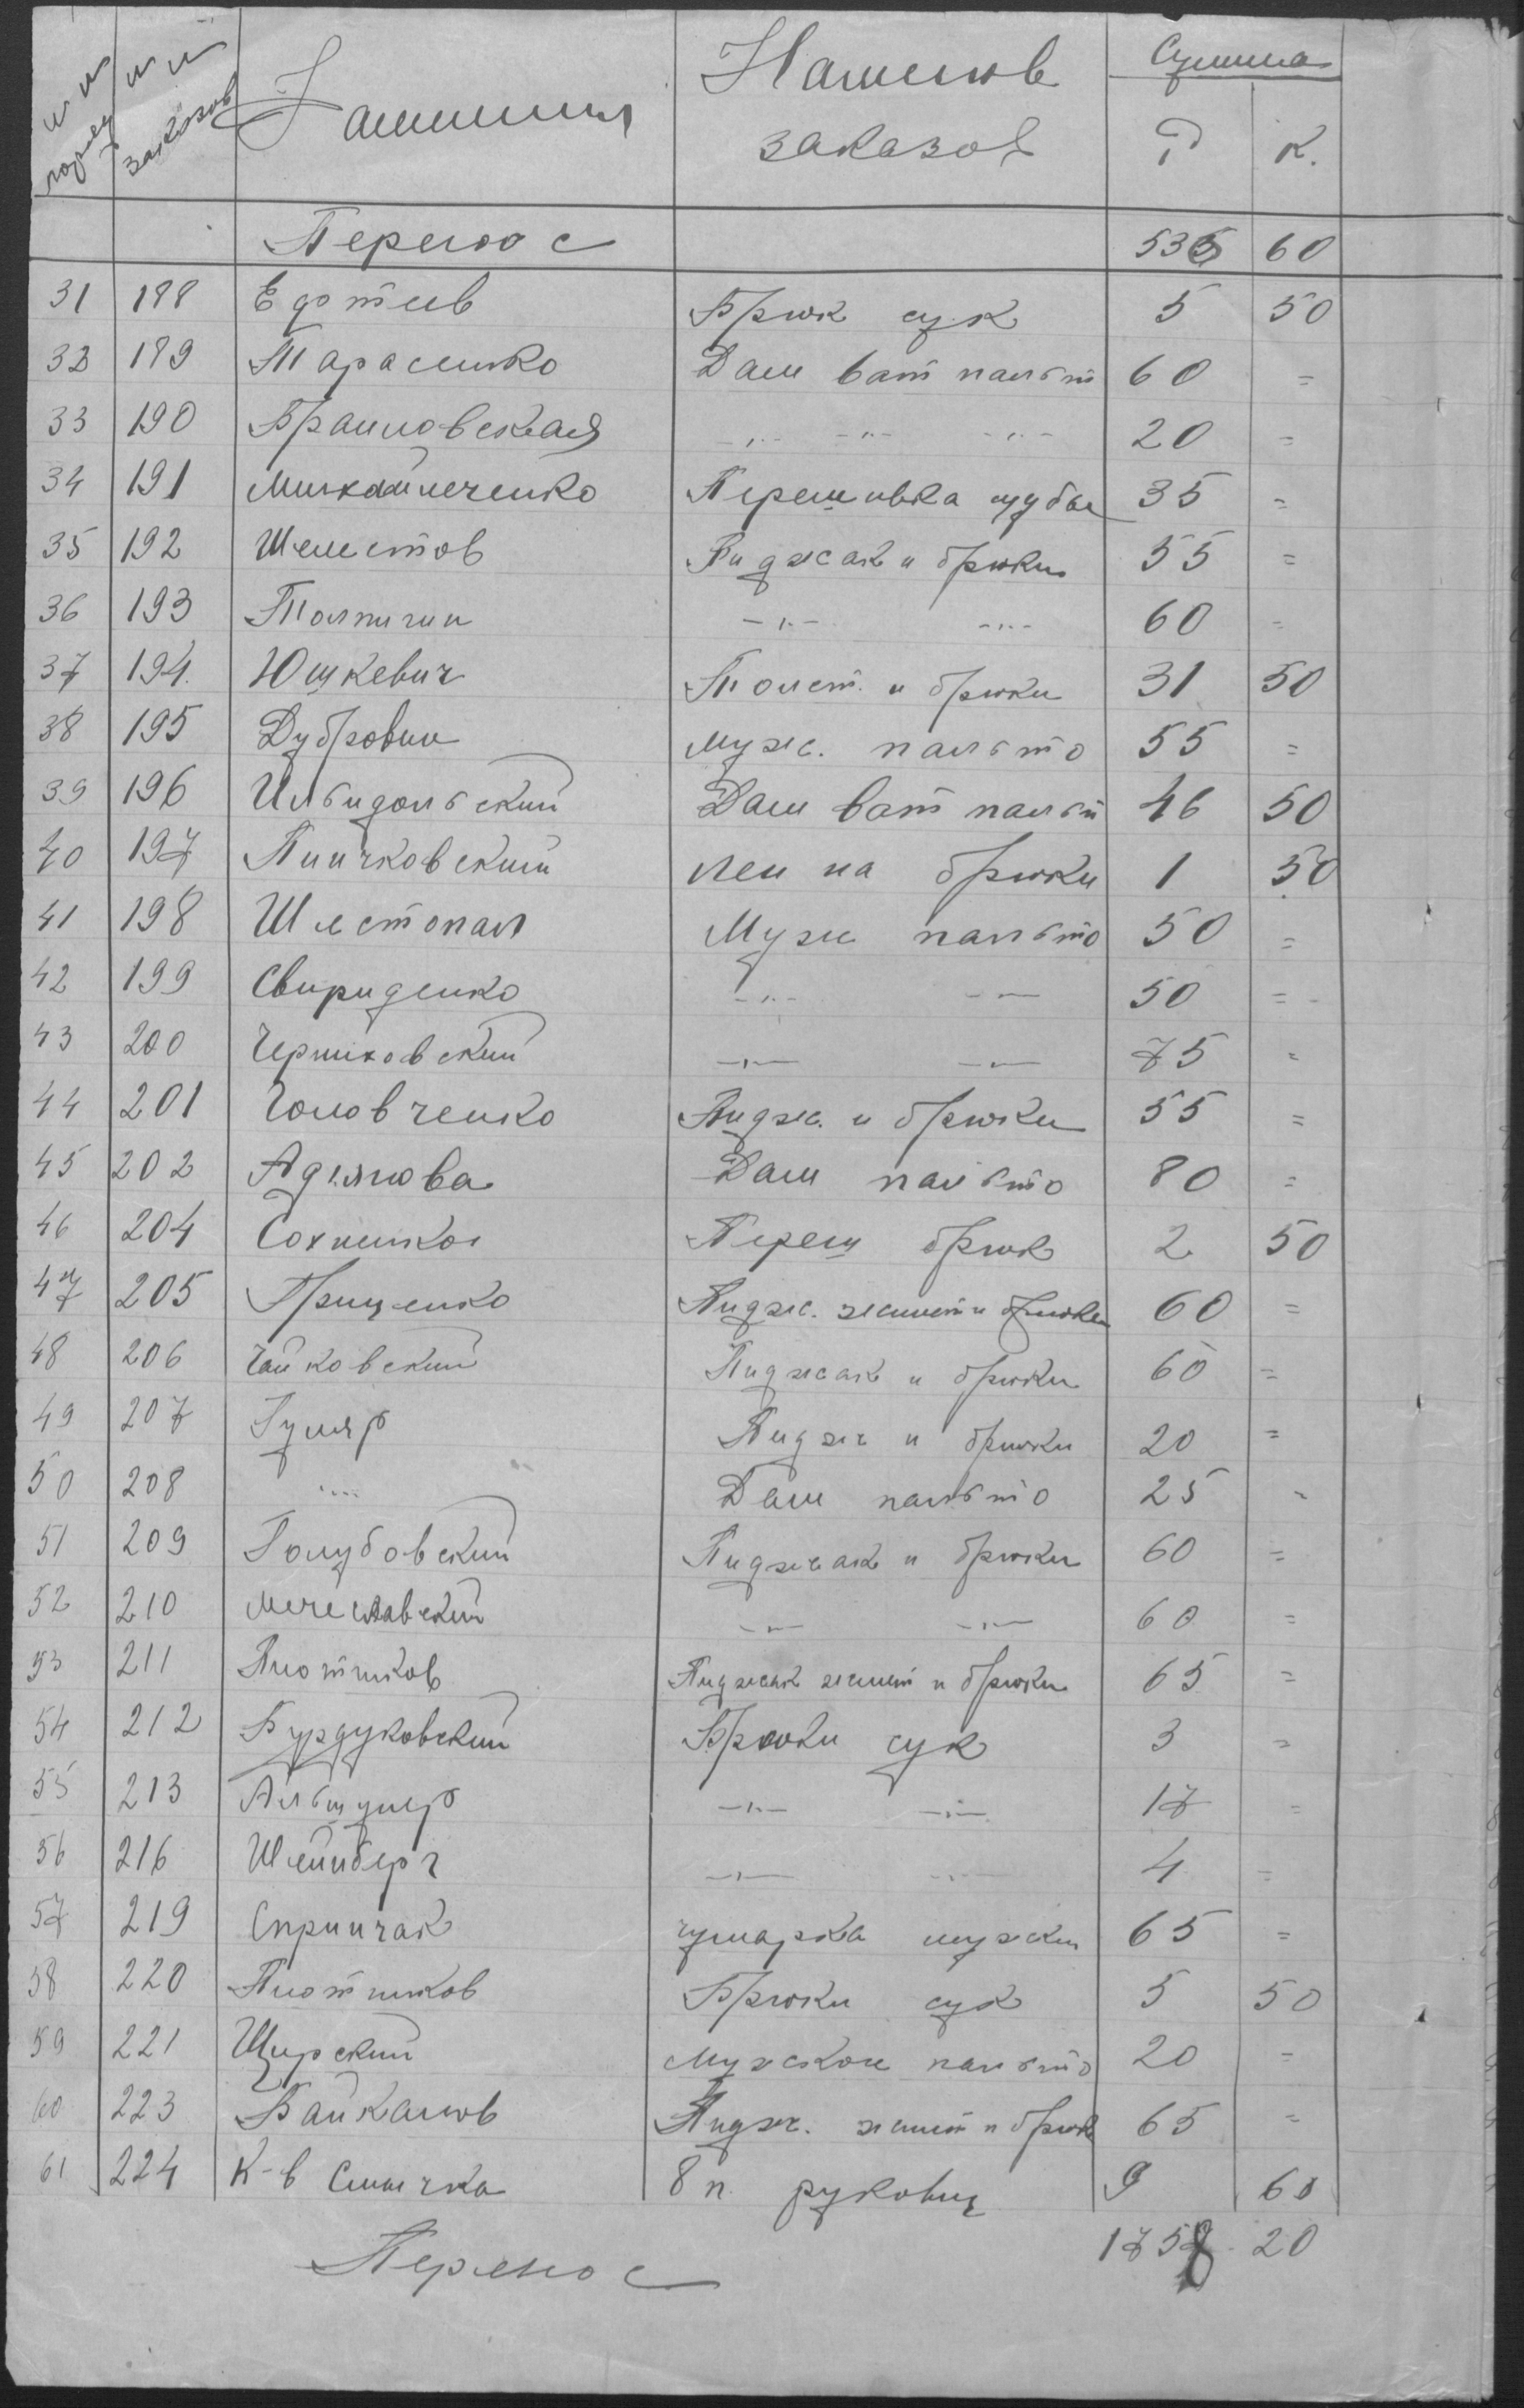 №№ поряд №№ заказов Фамилия Наимнов заказов Сумма Р К.
Перенос 535 60
31 188 Едотиев Брюк сук 5 50
32 189 Тарасенко Дам ват пальт 60 =
33 190 Браиловская -"- -"- -"- 20 =
34 191 Михайлеченко Перешивка шубы 35 =
35 192 Шелестов Пиджак и брюки 55 =
36 193 Толпигин -"- -"- 60 =
37 194. Юшкевич Толст. и брюки 31 50
38 195 Дубровин Мужс. пальто 55 =
39 196 Дам ват пальт 46 50
40 197 Пинчковский на брюки 1 50
41 198 Шестопал Муж пальто 50 =
42 199 Свириденко -"- -"- 50 =
43 200 Черняховский -"- -"- 75 =
44 201 Головченко Пидж. и брюки 55 =
45 202 Дам пальто 80 =
46 204 Переш брюк 2 50
47 205 Грищенко Пидж. жилет и брюки 60 =
48 206 Чайковский Пиджак и брюки 60 =
49 207 Гуляр Пидж и брюки 20 =
50 208 -"- Дам пальто 25 =
51 209 Голубовский Пиджак и брюки 60 =
52 210 Мечеславский -"- -"- 60 =
53 211 Плотников Пиджак жилет и брюки 65 =
54 212 Бурдуковский Брюки сук 3 =
55 213 Альтшулер -"- -"- 17 =
56 216 Шейнберг -"- -"- 4 =
57 219 Спринчак чумарка мужски 65 =
58 220 Плотников Брюки сук 5 50
59 221 Щирский Мужском пальто 20 =
60 223 Байкалов Пидж. жилет и брюк 65 =
61 224 К-в Смычка 8 п. рукавиц 9 60
Перенос 1758 20